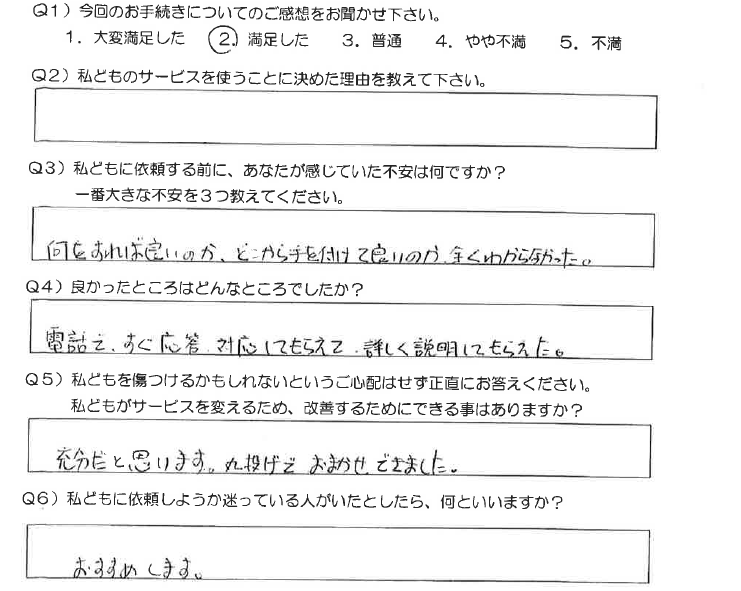 Q1）今回のお手続きについてのご感想をお聞かせ下さい。
1．大変満足した　2．満足した　3．普通　4．やや不満　5．不満
Q2）私どものサービスを使うことに決めた理由を教えて下さい。
Q3）私どもに依頼する前に、あなたが感じていた不安は何ですか？
一番大きな不安を３つ教えてください。
何をすれば良いのか、どこから手を付けて良いのか、全くわからなかった。
Q4）良かったところはどんなところでしたか？
電話で、すぐ応答、対応してもらえて、詳しく説明してもらえた。
Q5）私どもを傷つけるかもしれないというご心配はせず正直にお答えください。
私どもがサービスを変えるため、改善するためにできる事はありますか？
充分だと思います。丸投げで おまかせできました。
Q6）私どもに依頼しようか迷っている人がいたとしたら、何といいますか？
おすすめします。